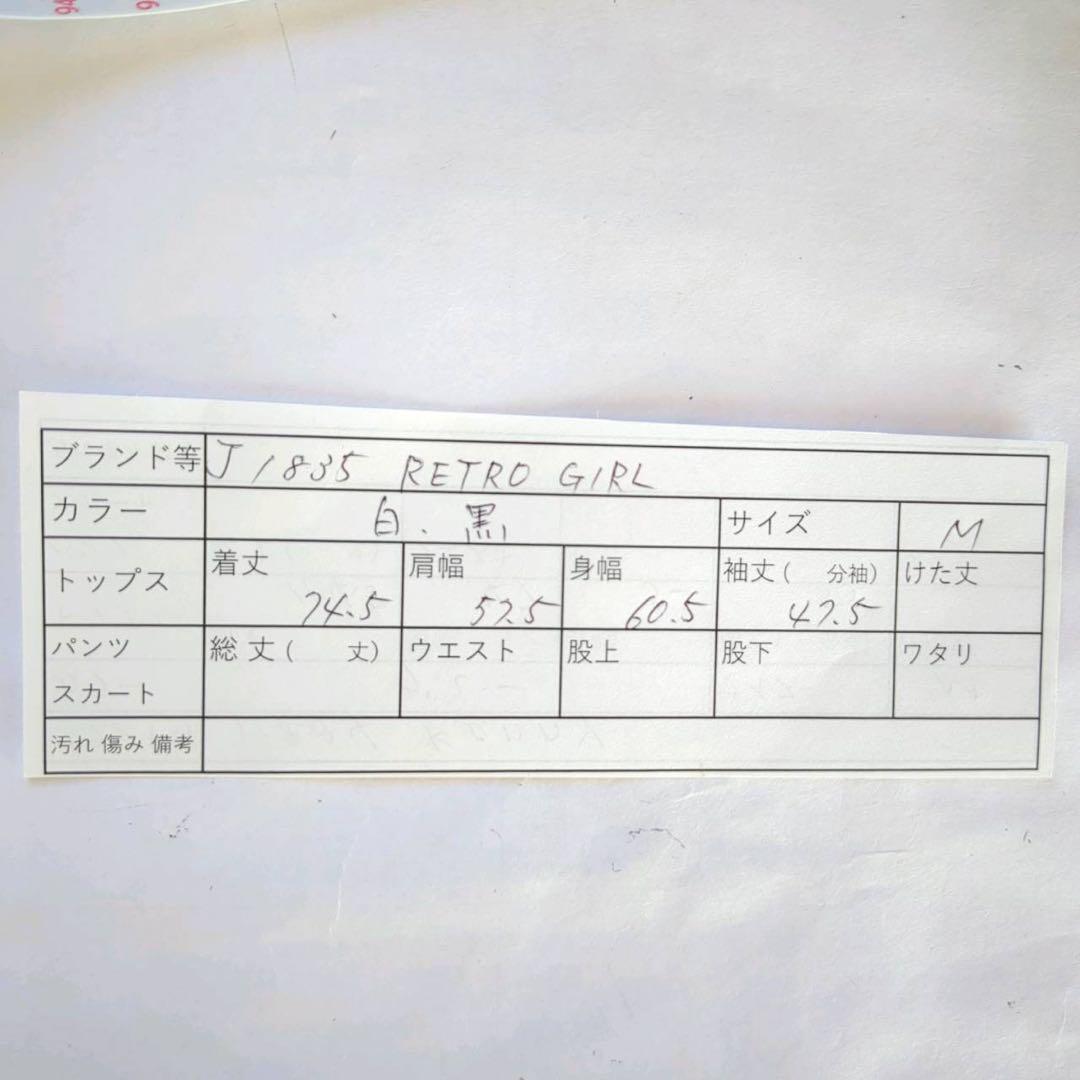 ブランド等 J1835 RETRO GIRL
カラー 白、黒 サイズ M
トップス 着丈 74.5 肩幅 57.5 身幅 60.5 袖丈(　分袖) 47.5 けた丈
パンツ スカート 総丈(　丈) ウエスト 股上 股下 ワタリ
汚れ 傷み 備考